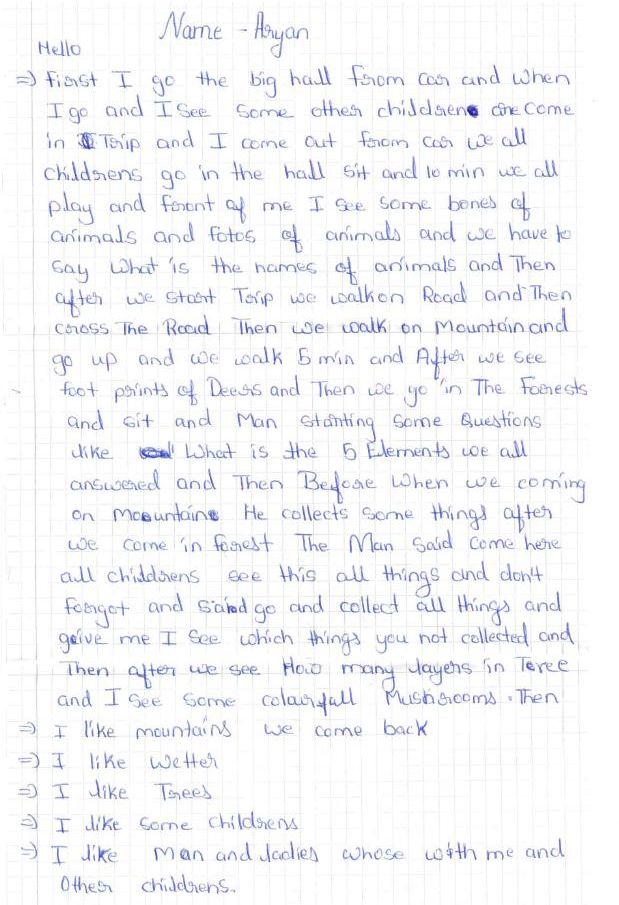 Name - Aryan
Hello
⇒ first I go the big hall from car and when
I go and I see some other childdrens are come
in Trip and I come out from car we all
childrens go in the hall sit and 10 min we all
play and foront of me I see some bones of
animals and fotos of animals and we have to
say what is the names of animals and Then
after we start Trip we walk on Road and Then
cross The Road Then we walk on Mountain and
go up and we walk 5 min and After we see
foot prints of Deers and Then we go in The Forests
and sit and Man starting some Questions
like What is the 5 Elements we all
answered and Then Before when we coming
on Moountains He collects some things after
we come in forest The Man said come here
all childdrens see this all things and don't
forgot and said go and collect all things and
give me I see which things you not collected and
Then after we see How many layers in Teree
and I see some colourfull Mushrooms. Then
⇒ I like mountains we come back
⇒ I like wetter
⇒ I like Trees
⇒ I like some childrens
⇒ I like Man and ladies whose with me and
Other childrens.